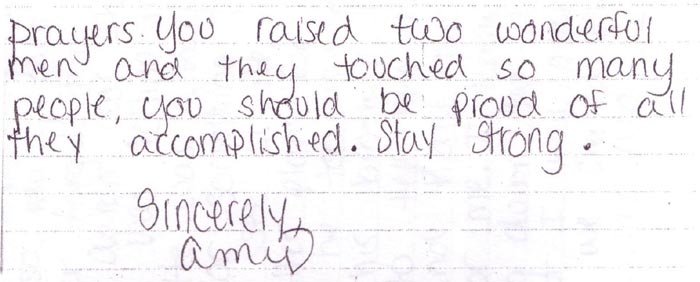 prayers. You raised two wonderful
men and they touched so many
people, you should be proud of all
they accomplished. Stay Strong.
Sincerely,
amy